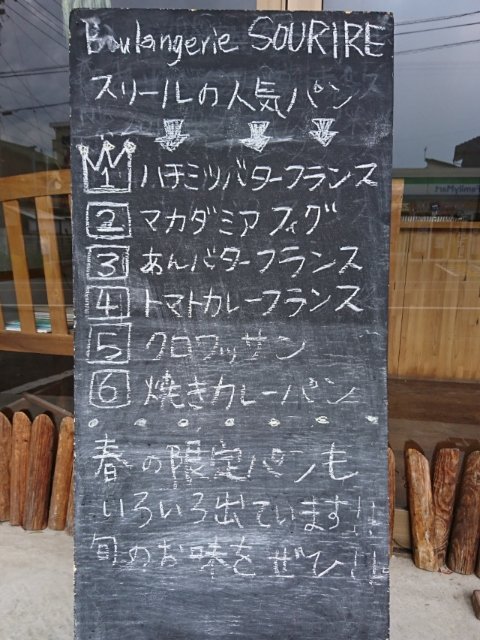 Boulangerie SOURIRE
スリールの人気パン
1 ハチミツバターフランス
2 マカダミアフィグ
3 あんバターフランス
4 トマトカレーフランス
5 クロワッサン
6 焼きカレーパン
春の限定パンも
いろいろ出ています!!
旬のお味をぜひ!!
FamilyMart